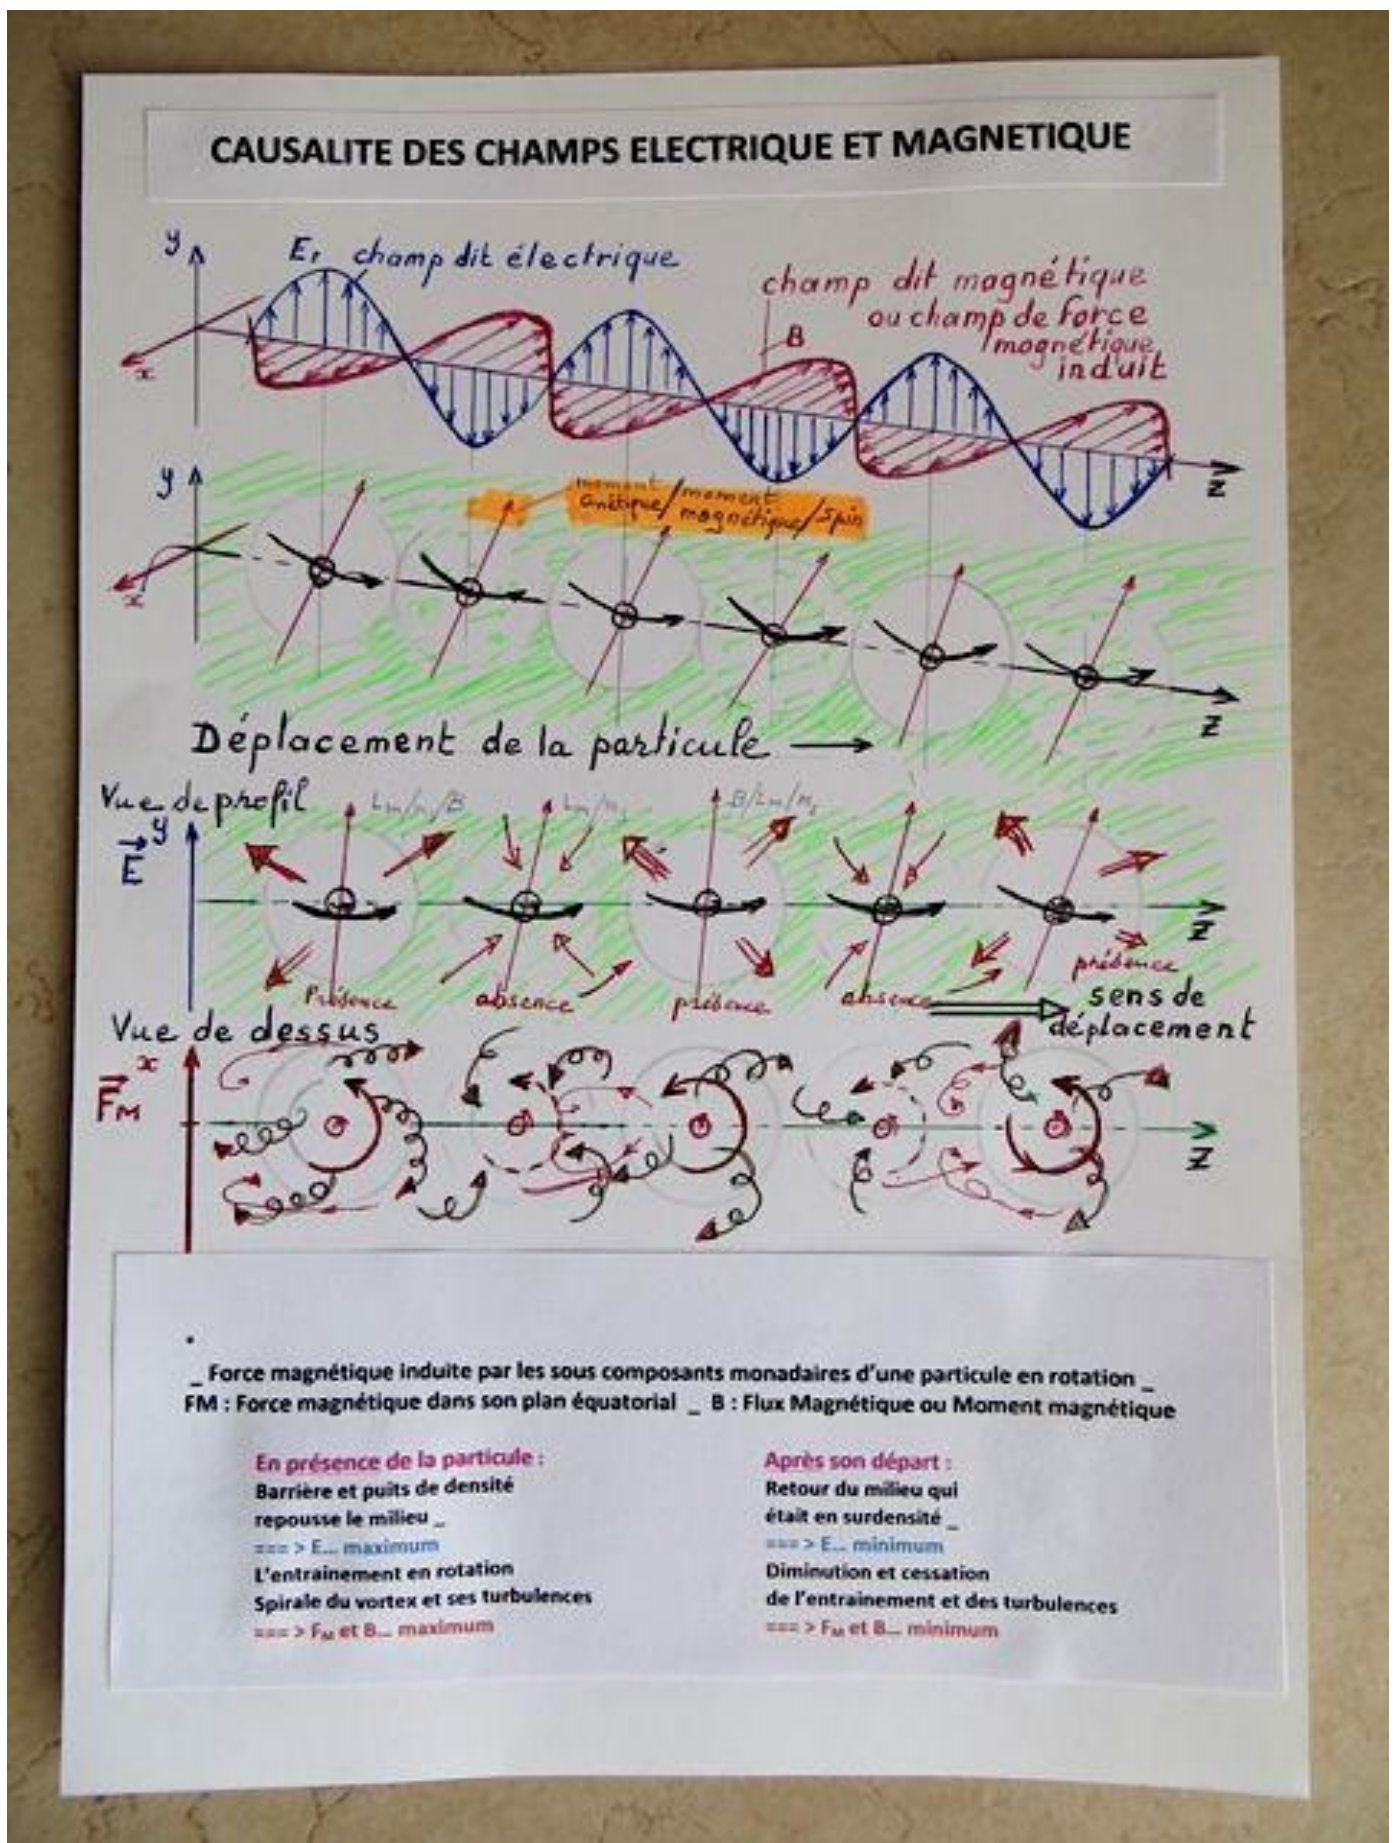 CAUSALITE DES CHAMPS ELECTRIQUE ET MAGNETIQUE
y
E, champ dit électrique
champ dit magnétique
ou champ de force
magnétique
induit
B
x
z
y
moment
cinétique/moment
magnétique/spin
x
z
Déplacement de la particule
Vue de profil
y
E
B
B/Lm/
z
Présence
absence
présence
absence
présence
sens de
déplacement
Vue de dessus
x
FM
z
.
_ Force magnétique induite par les sous composants monadaires d'une particule en rotation _
FM : Force magnétique dans son plan équatorial _ B : Flux Magnétique ou Moment magnétique
En présence de la particule :
Barrière et puits de densité
repousse le milieu _
=== > E... maximum
L'entrainement en rotation
Spirale du vortex et ses turbulences
=== > FM et B... maximum
Après son départ :
Retour du milieu qui
était en surdensité _
=== > E... minimum
Diminution et cessation
de l'entrainement et des turbulences
=== > FM et B... minimum